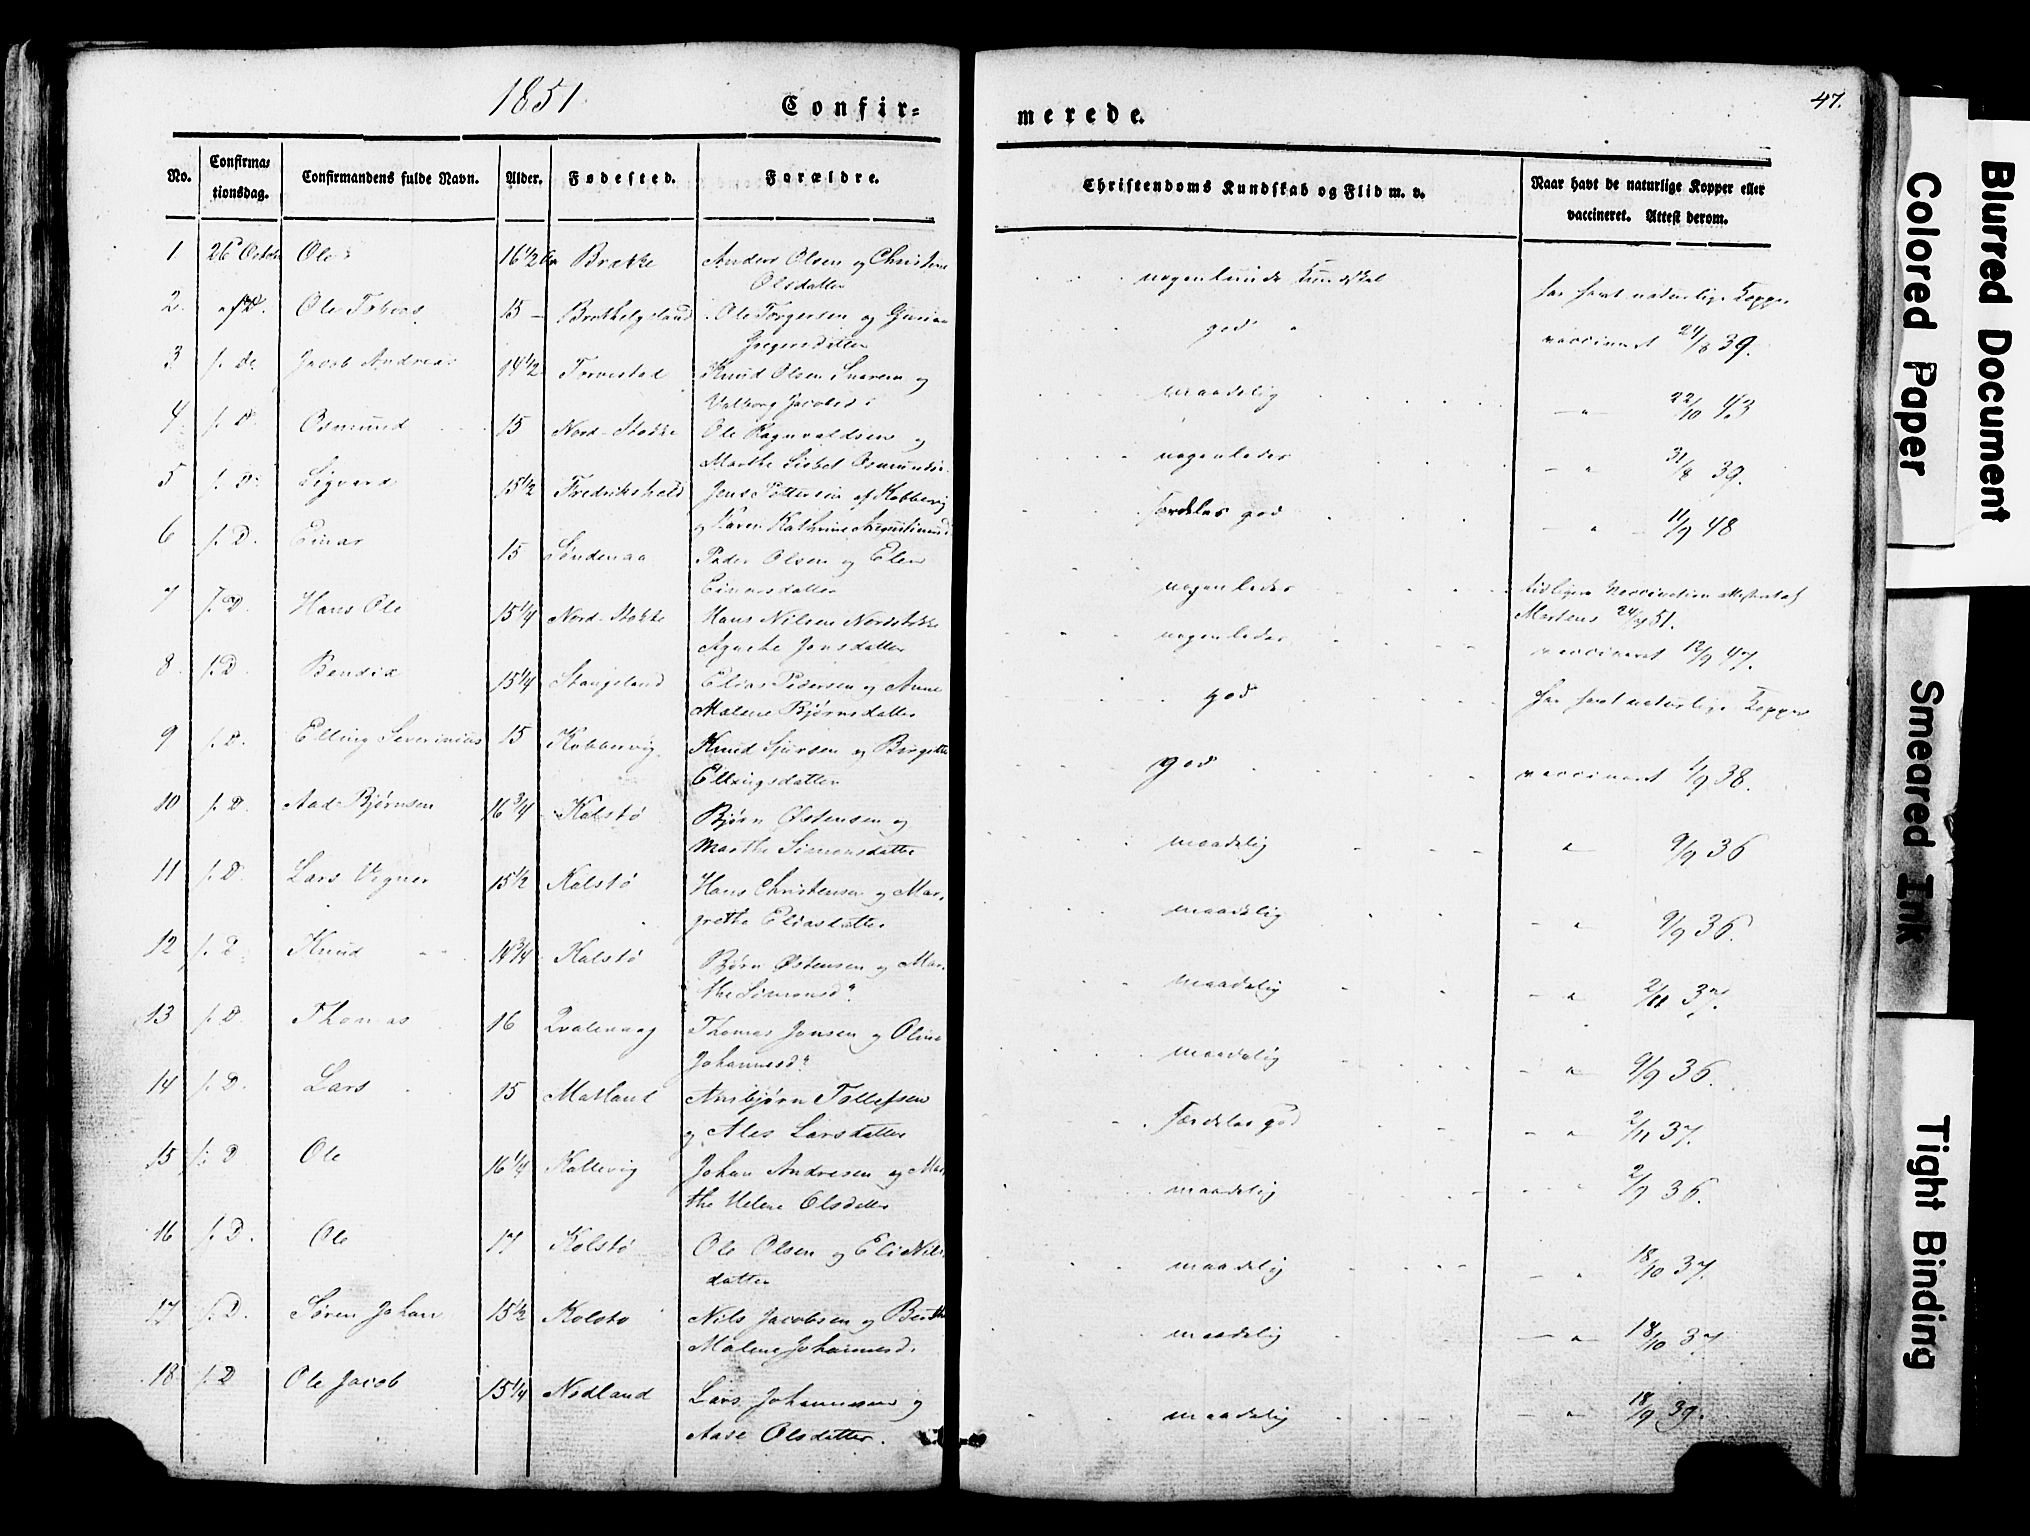 1851
Confir-
merede.
47.
No.
Confirma-
tionsdag.
Confirmandens fulde Navn.
Alder.
Fødested.
Forældre.
Christendoms Kundskab og Flid m. v.
Naar havt de naturlige Kopper eller
vaccineret. Attest derom.
1 26 Octobr Ole 16 1/2 Aar Brække Anders Olsen og Christine
Olsdatter
nogenlunde Kundskab
har havt naturlige Kopper
2. Ole Tobias 15 – Brekhelgeland Ole Torgersen og Gurine
Gregersdatter
god "
vaccineret 24/8 39.
3 f. D. Jacob Andreas 14 1/2 Torvestad Knud Olsen Snaren og
Valborg Jacobsd:
maadelig
– " – 22/10 43
4 f. D. Osmund 15 Nord-Stokke Ole Ragnvaldsen og
Marthe Lisbet Osmundsd.
nogenledes
– " 31/8 39.
5 f. D. Sigvard 15 1/2 Fredrikshald Jens Pettersen af Kobbervig
og Karen Kathrine
særdeles god
– " 11/9 48
6 f. D. Einar 15 Søndenaa Peder Olsen og Elen
Einersdatter
nogenledes
tidligere Vaccination attesteret af
Mertens 24/ 51.
7 f. D. Hans Ole 15 1/4 Nord-Stokke Hans Nilsen Nordstokke
Agnethe Jonsdatter
nogenledes
vaccineret 12/9 47.
8. f. D. Bendix 15 1/4 Stangeland Elias Pedersen og Anne
Malene Bjørnsdatter
god
har havt naturlige Kopper
9 f. D. Elling Severinius 15 Kobbervig Knud Sjursen og Birgitte
Ellingsdatter
god
vaccineret 38.
10 f. D. Aad Bjørnsen 16 3/4 Kalstø Bjørn Østensen og
Marthe Simonsdatter
maadelig
" 9/9 36
11 f. D. Lars Vegner 15 1/2 Kalstø Hans Christensen og Mar-
grethe Eliasdatter
maadelig
– " 9/9 36.
12 f. D. Knud 14 3/4 Kalstø Bjørn Østensen og Mar-
the Simonsd.
maadelig
– " 2/11 37.
13 f. D Thomas 16 Qvalevaag Thomas Jonsen og Oline
Johannesd.
maadelig
– " 9/9 36.
14 f. D. Lars 15 Matland Ansbjørn Tollefsen
og Ales Larsdatter
særdeles god
– " 2/11 37.
15 f. D Ole 16 1/4 Kallevig Johan Andresen og Mar-
the Helene Olsdatter
maadelig
2/9 36.
16 f. D. Ole 17 Kolstø Ole Olsen og Eli Nils-
datter
maadelig
– " 18/10 37.
17 f. D. Søren Johan 15 1/2 Kolstø Nils Jacobsen og Berthe
Malene Johannesd.
maadelig
– " 18/10 37.
18 f. D Ole Jacob 15 1/4 Nedland Lars Johannesen og
Aase Olsdatter.
maadelig
– " 18/9 39.
Blurred Document
Colored Paper
Smeared Ink
Tight Binding